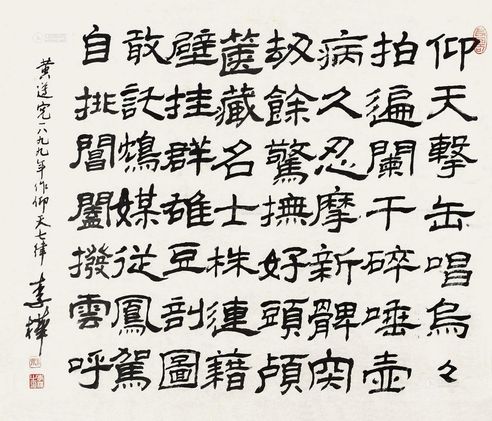 仰天擊缶唱烏々
拍遍闌干碎唾壺
病久忍摩新髀肉
劫餘驚撫好頭顱
篋藏名士株連籍
壁挂群雄豆剖圖
敢託鴆媒從鳳駕
自排閶闔撥雲呼
黃遵憲一八九九年作仰天七律 李鐸